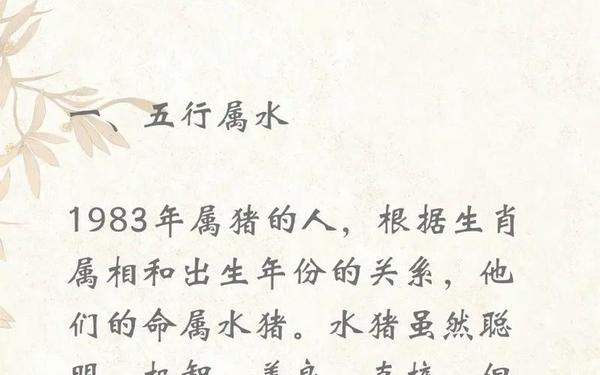 一、五行属水
1983年属猪的人，根据生肖
属相和出生年份的关系，他
们的命属水猪。水猪虽然聪